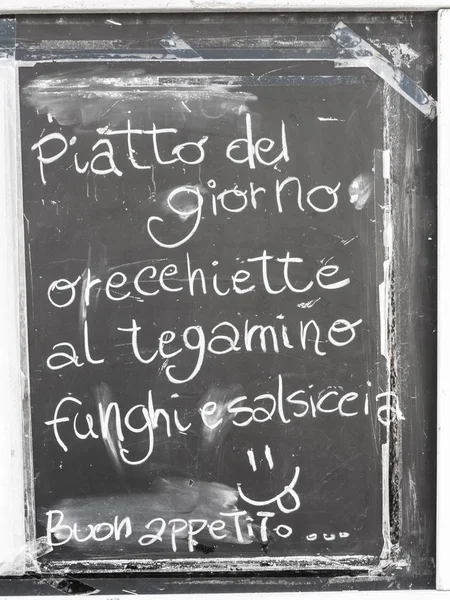 Piatto del
giorno
orecchiette
al tegamino
funghi e salsiccia
Buon appetito ...